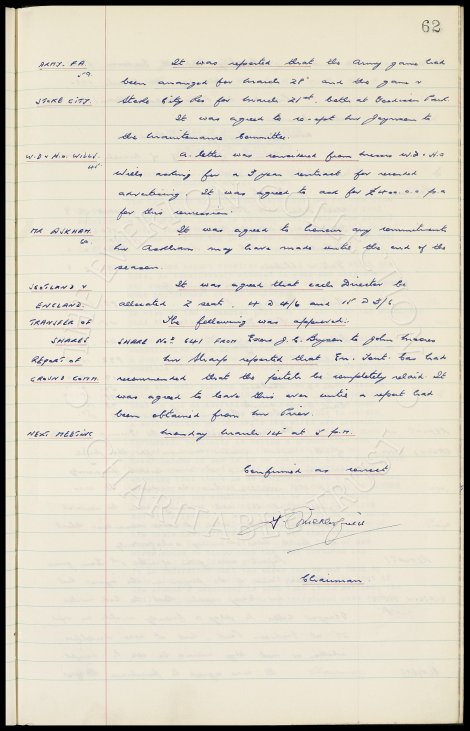 62
ARMY. F.A.
59.
It was reported that the Army game had
been arranged for March 28th and the game v
STOKE CITY.
Stoke City Res for March 21st. both at Goodison Park.
It was agreed to co-opt Mr
the Maintenance Committee.
W.D & H.O. WILLS.
A letter was received from Messrs W.D. & H.O
Wills asking for a 3 year contract for
advertising. It was agreed to ask for £400.0.0 p.a
for this concession.
MR ASKHAM.
60.
It was agreed to honour any commitments
Mr Askham may have made until the end of the
season.
SCOTLAND V
ENGLAND.
It was agreed that each Director be
allocated 2 seats.
TRANSFER OF
SHARES
The following was approved:
SHARE No. 641 FROM Exors J.C. to John Moores
REPORT OF
GROUND COMM.
Mr Sharp reported that En. Tout Cas had
recommended that the pitch be completely relaid. It
was agreed to leave this over until a report had
been obtained from Mr
NEXT MEETING
Monday March 14th at 5 p.m.
Confirmed as correct
Chairman.
EVERTON
CHARITABLE TRUST